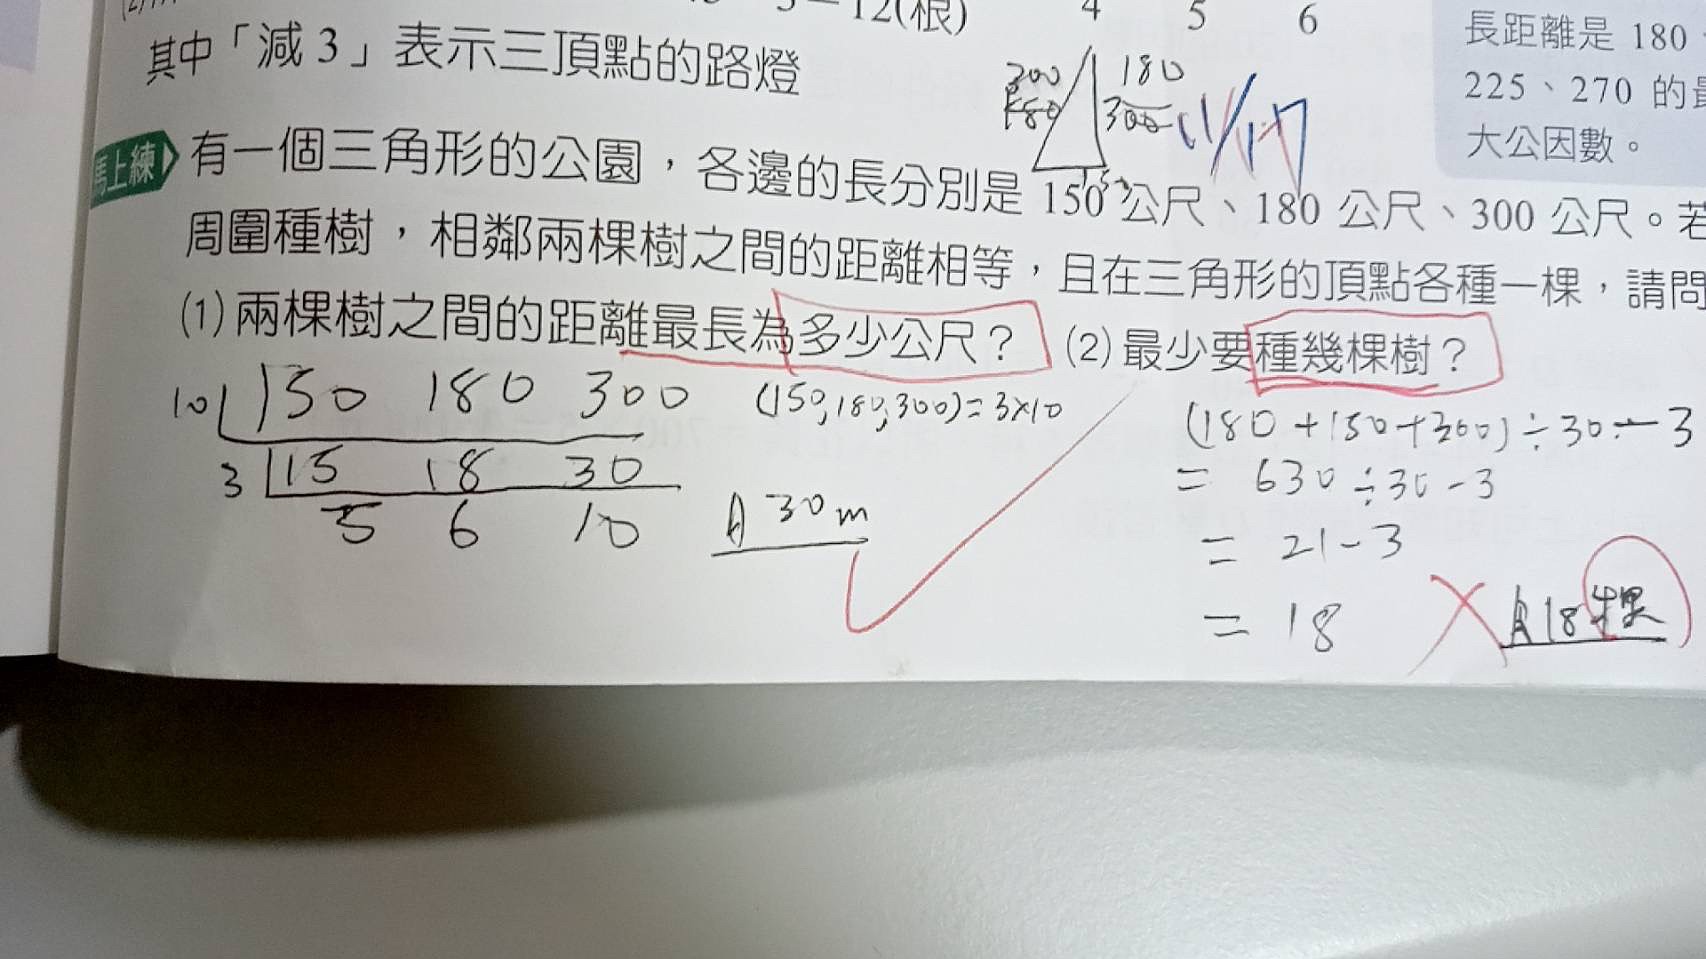 3＝12(根)
4 5 6
其中「減 3」表示三頂點的路燈
長距離是 180
225、270 的最
大公因數。
300 180
180 300
11/17
150
馬上練 有一個三角形的公園，各邊的長分別是 150 公尺、180 公尺、300 公尺。若
周圍種樹，相鄰兩棵樹之間的距離相等，且在三角形的頂點各種一棵，請問
(1) 兩棵樹之間的距離最長為多少公尺？ (2) 最少要種幾棵樹？
10 150 180 300 (150,180,300)=3×10
3 15 18 30
5 6 10
A 30 m
(180+150+300)÷30-3
= 630÷30-3
= 21-3
= 18
A 18 棵